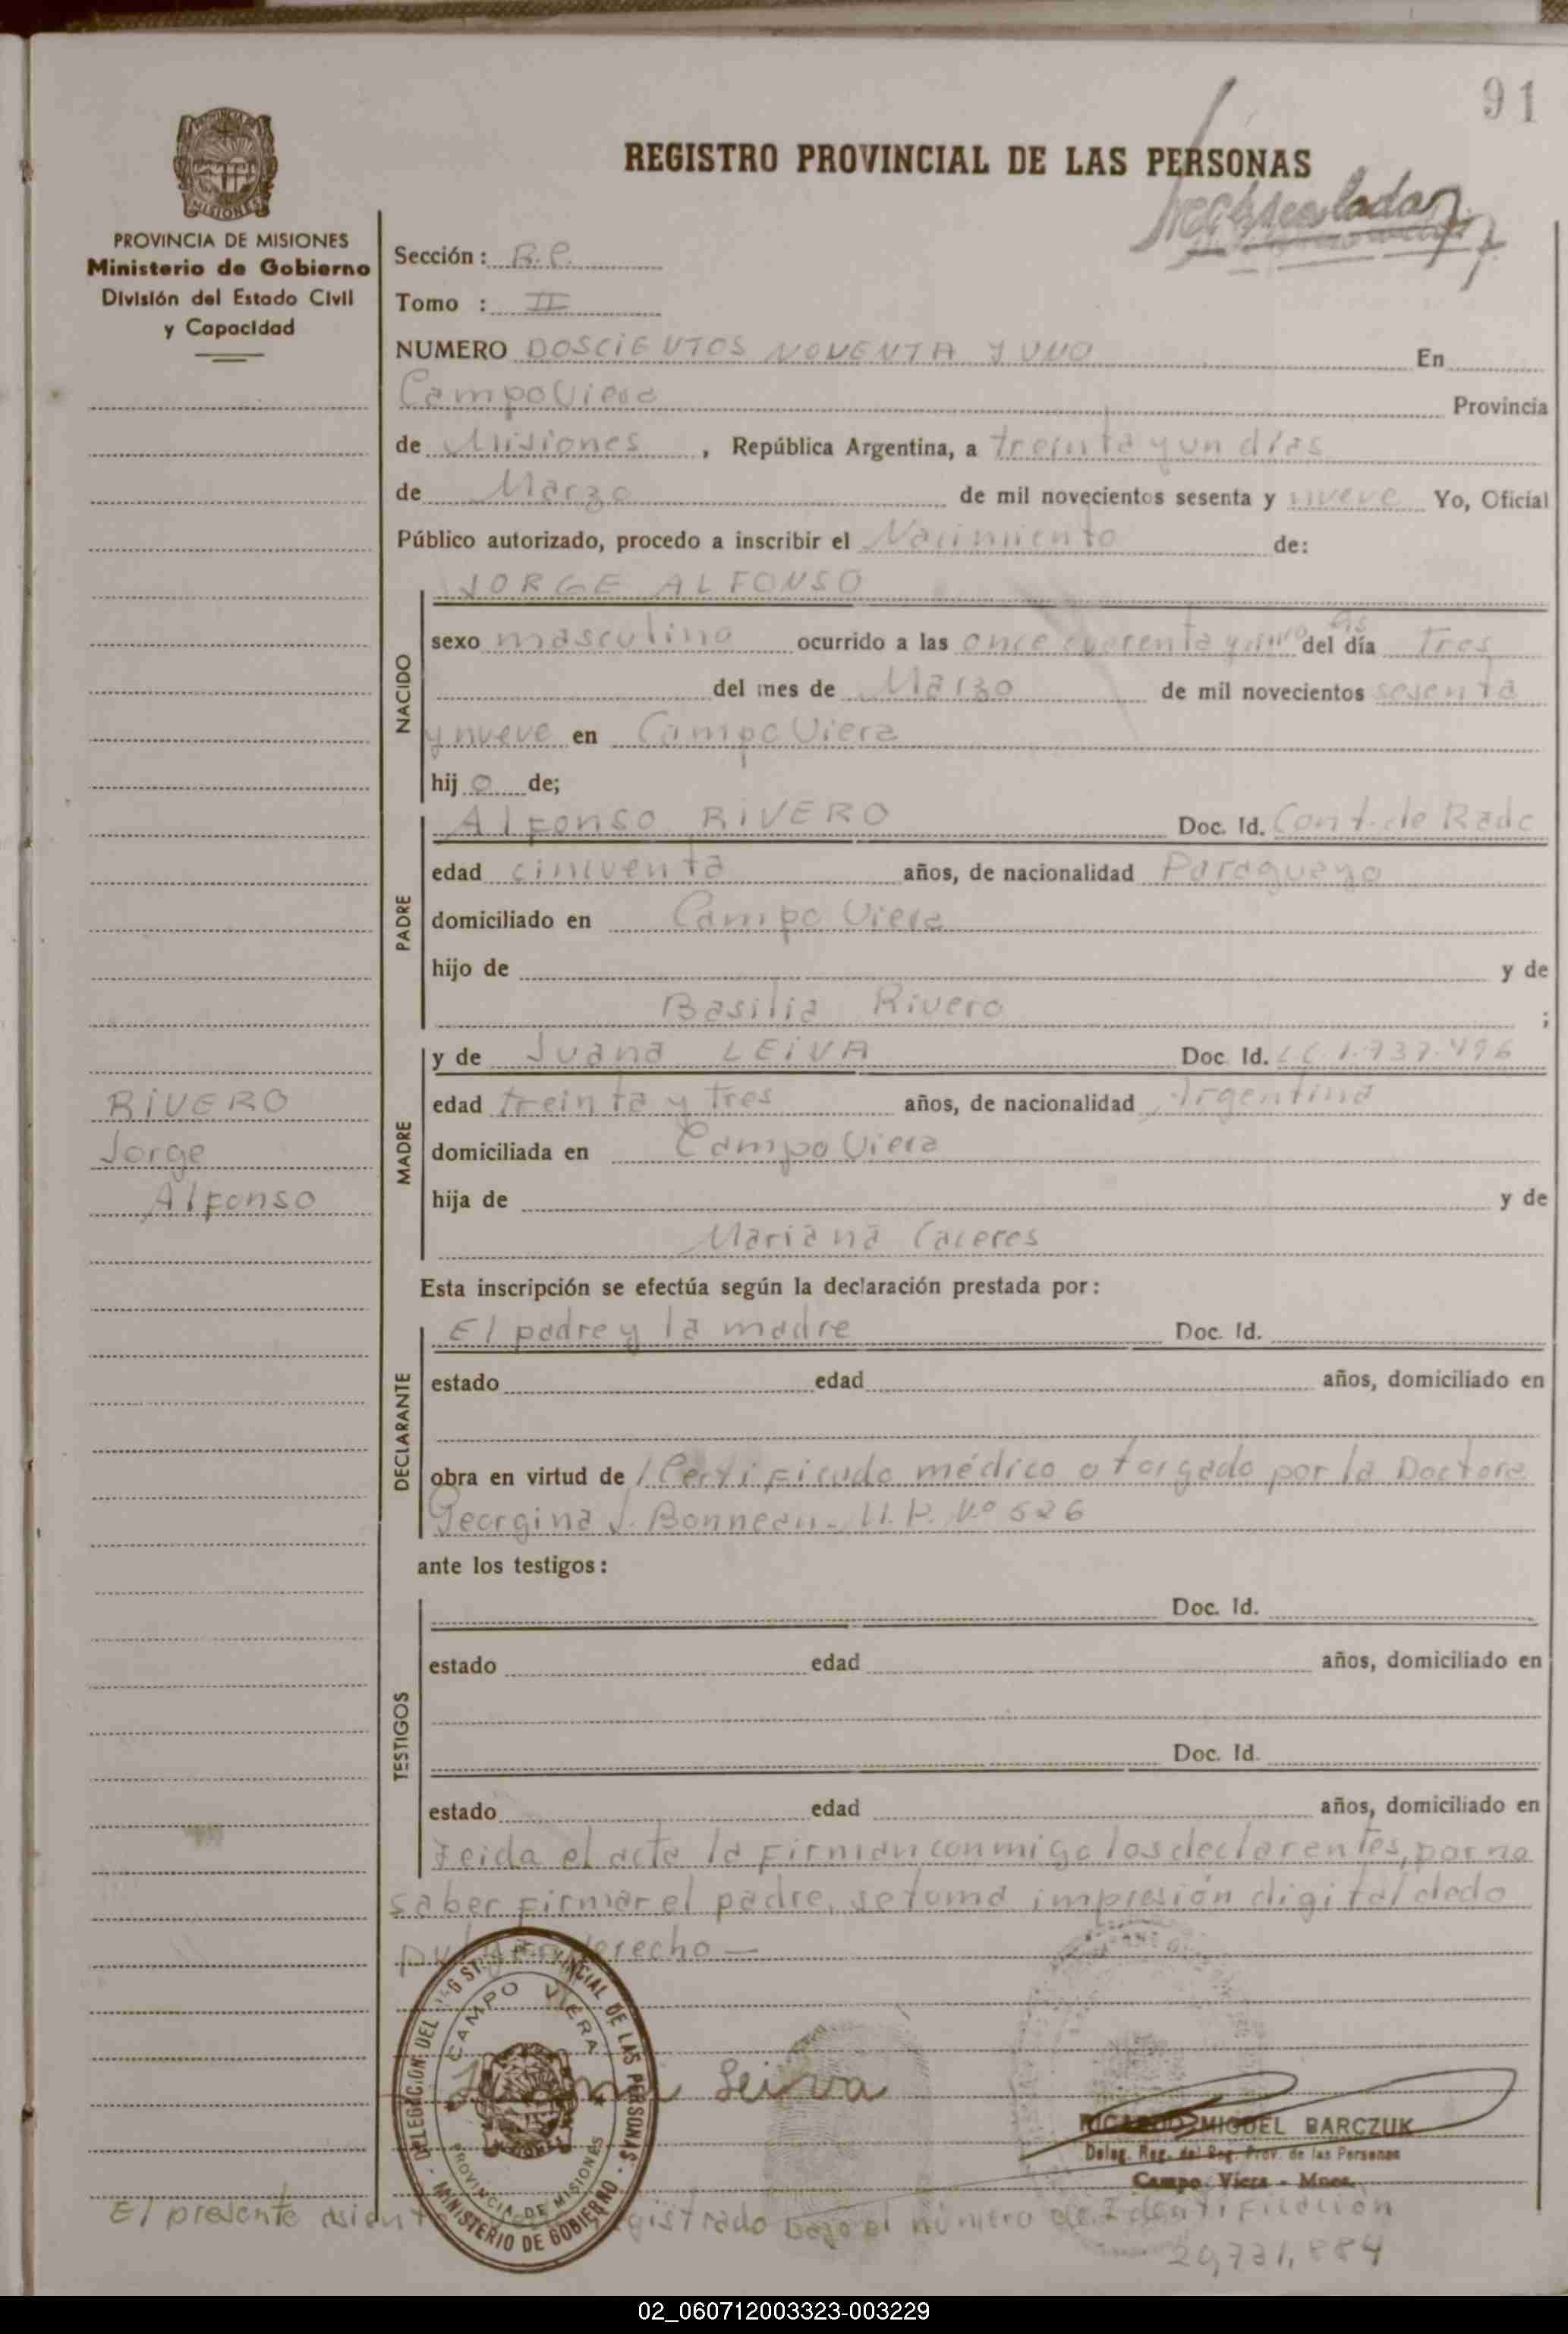 91
REGISTRO PROVINCIAL DE LAS PERSONAS
MISIONES
PROVINCIA DE MISIONES
Ministerio de Gobierno
División del Estado Civil
y Capacidad
Sección: R.P.
Tomo : II
NUMERO DOSCIENTOS NOVENTA Y UNO En
Campo Viera Provincia
de Misiones, República Argentina, a treinta y un días
de Marzo de mil novecientos sesenta y nueve Yo, Oficial
Público autorizado, procedo a inscribir el Nacimiento de:
NACIDO
JORGE ALFONSO
sexo masculino ocurrido a las once cuarenta y del día tres
del mes de Marzo de mil novecientos sesenta
y nueve en Campo Viera
hijo de;
PADRE
Alfonso RIVERO Doc. Id. Cont. de Radc
edad cincuenta años, de nacionalidad Paraguaya
domiciliado en Campo Viera
hijo de y de
Basilia Rivero ;
MADRE
y de Juana LEIVA Doc. Id. L.C. 1.737.496
edad treinta y tres años, de nacionalidad Argentina
domiciliada en Campo Viera
hija de y de
Mariana Caceres
RIVERO
Jorge
Alfonso
Esta inscripción se efectúa según la declaración prestada por:
DECLARANTE
El padre y la madre Doc. Id.
estado edad años, domiciliado en
obra en virtud de / Certificado médico otorgado por la Doctora
Georgina J. Bonneau - M.P. Nº 526
ante los testigos:
TESTIGOS
Doc. Id.
estado edad años, domiciliado en
Doc. Id.
estado edad años, domiciliado en
Leida el acta la firman conmigo los declarentes, por no
saber firmar el padre, se toma impresión digital dedo
pulgar derecho —
DELEGACION DEL REGISTRO PROVINCIAL DE LAS PERSONAS
CAMPO VIERA
PROVINCIA DE MISIONES
MINISTERIO DE GOBIERNO
Juana Leiva
RICARDO MIGUEL BARCZUK
Deleg. Reg. del Reg. Prov. de las Personas
Campo Viera - Mnes.
El presente registrado bajo el número de Identificación
20,731,884
02_060712003323-003229